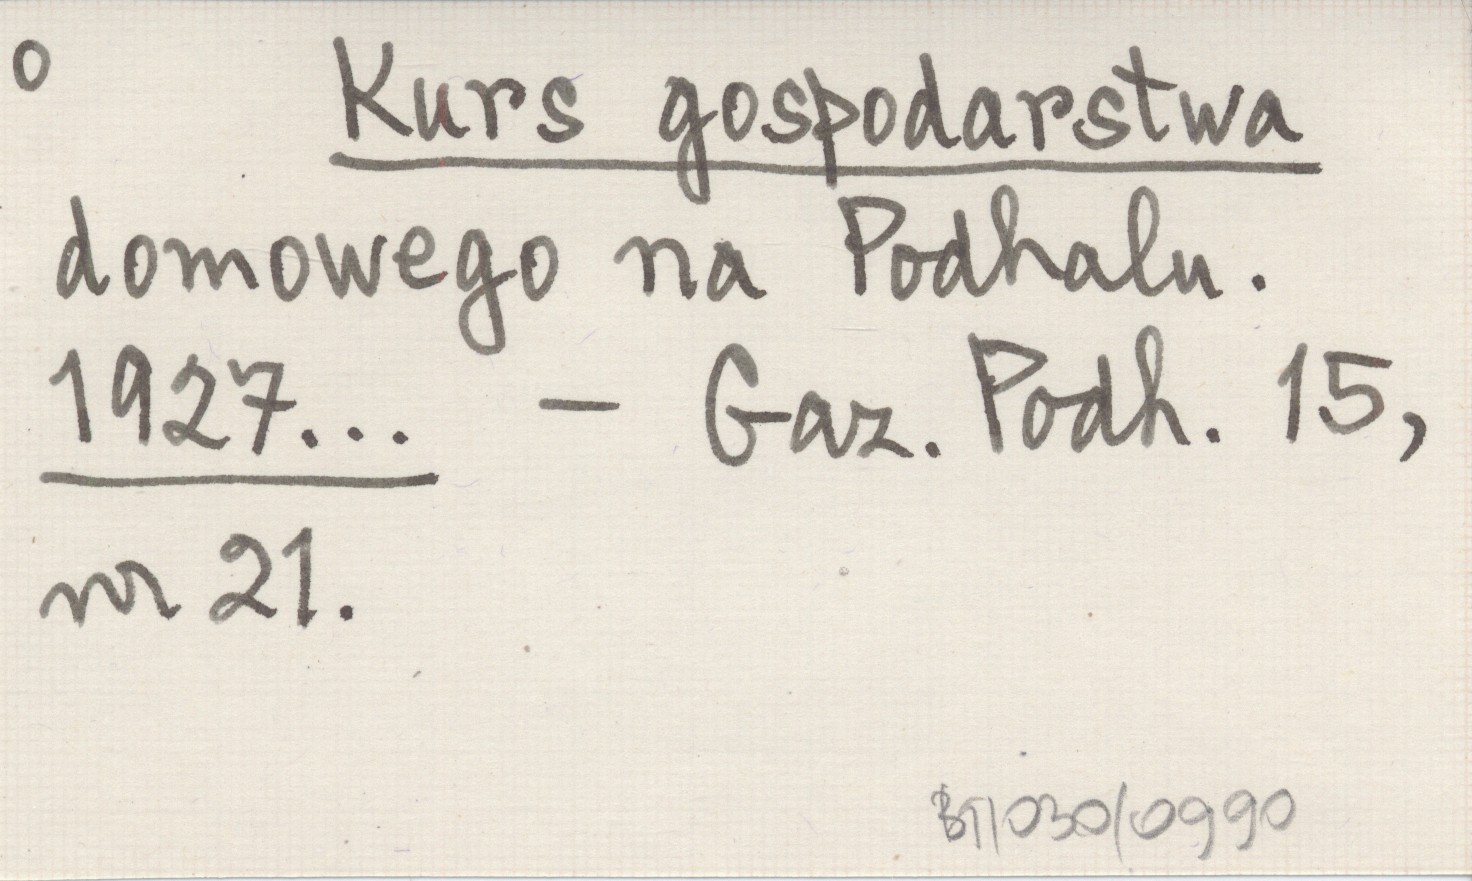 o Kurs gospodarstwa
domowego na Podhalu.
1927... – Gaz. Podh. 15,
nr 21.
BT/030/0990